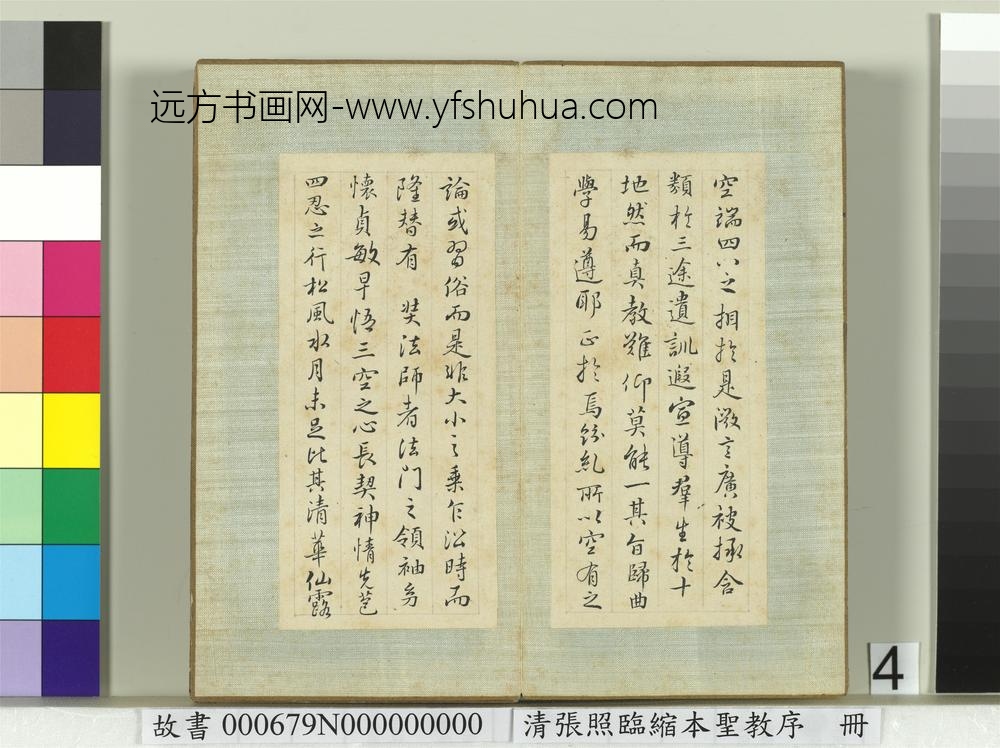 远方书画网-www.yfshuhua.com
空端四八之相於是微言廣被拯含
類於三途遺訓遐宣導群生於十
地然而真教難仰莫能一其旨歸曲
學易遵耶正於焉紛糺所以空有之
論或習俗而是非大小之乘乍沿時而
隆替有 奘法師者法門之領袖也幼
懷貞敏早悟三空之心長契神情先苞
四忍之行松風水月未足比其清華仙露
4
故書 000679N000000000 清張照臨縮本聖教序 冊